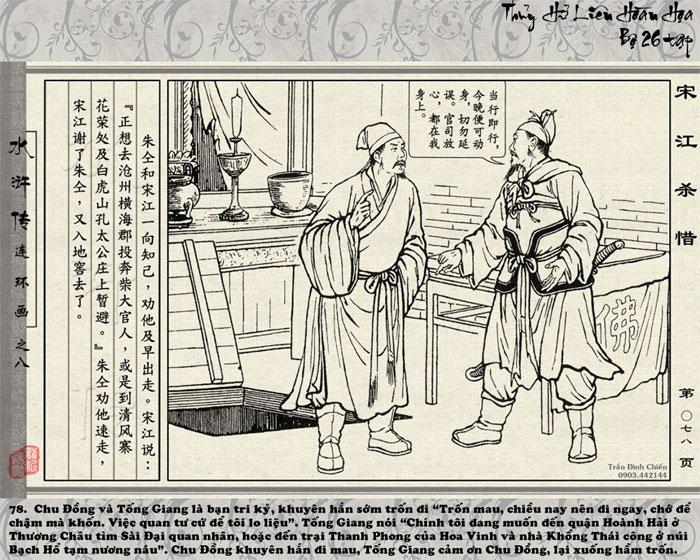 Thủy Hử Liên Hoàn Họa
Bộ 26 tập
宋江杀惜
第〇七八页
当行即行，
今晚便可动
身，切勿延
误。官司放
心，都在我
身上。
佛
朱仝和宋江一向知己，劝他及早出走。宋江说：
『正想去沧州横海郡投奔柴大官人，或是到清风寨
花荣处及白虎山孔太公庄上暂避。』朱仝劝他速走，
宋江谢了朱仝，又入地窖去了。
水浒传 连环画 之八
Trần Đình Chiến
0903.442144
78. Chu Đồng và Tống Giang là bạn tri kỷ, khuyên hắn sớm trốn đi “Trốn mau, chiều nay nên đi ngay, chớ để
chậm mà khốn. Việc quan tư cứ để tôi lo liệu”. Tống Giang nói “Chính tôi đang muốn đến quận Hoành Hải ở
Thương Châu tìm Sài Đại quan nhân, hoặc đến trại Thanh Phong của Hoa Vinh và nhà Khổng Thái công ở núi
Bạch Hổ tạm nương náu”. Chu Đồng khuyên hắn đi mau, Tống Giang cảm ơn Chu Đồng, lại xuống hầm trốn.